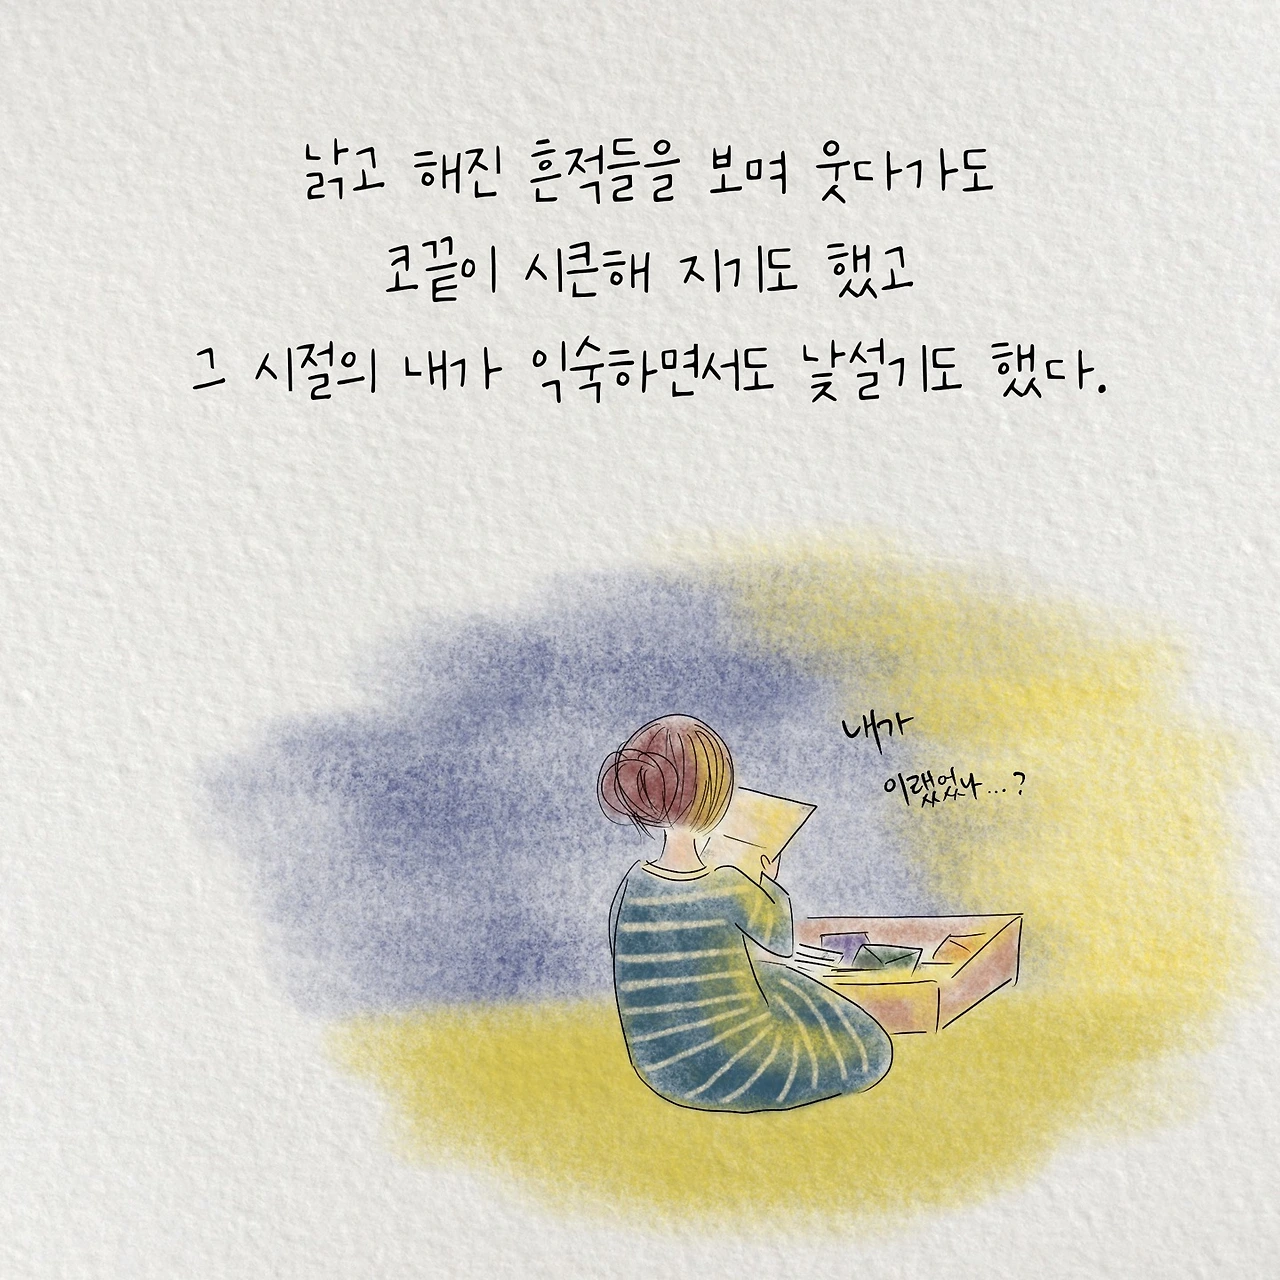 낡고 해진 흔적들을 보며 웃다가도
코끝이 시큰해 지기도 했고
그 시절의 내가 익숙하면서도 낯설기도 했다.
내가
이랬었나...?